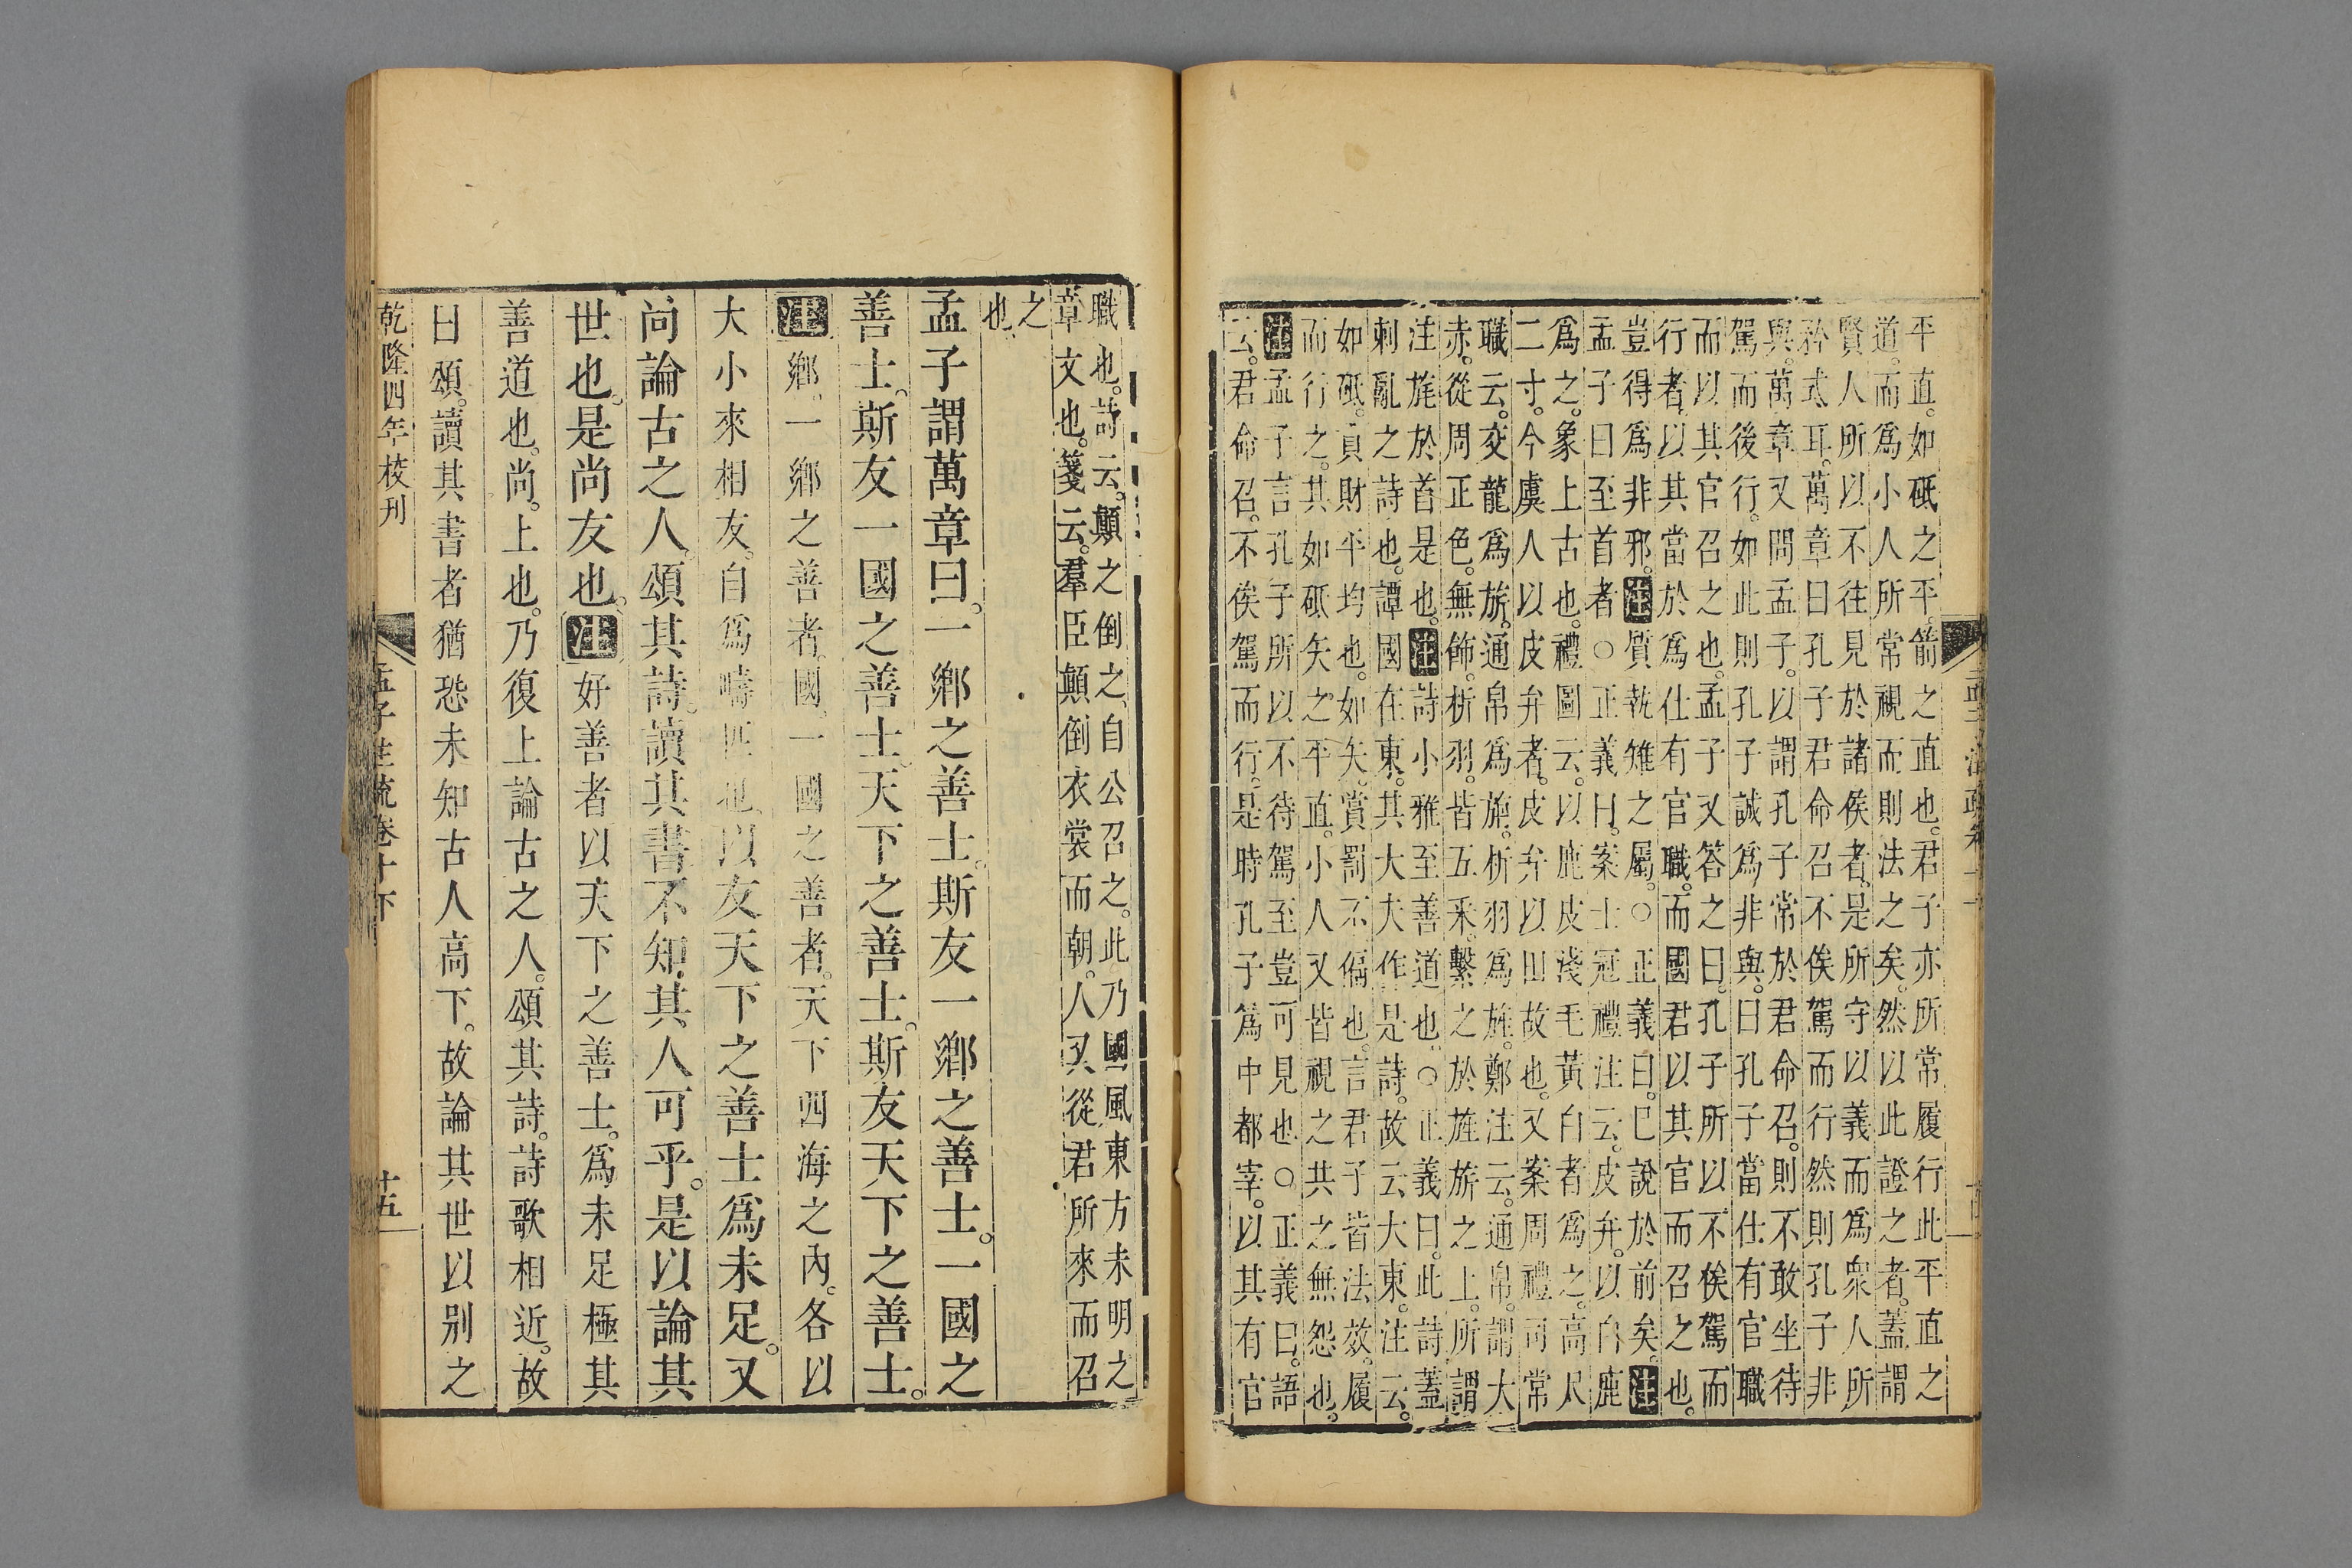 平直。如砥之平。箭之直也。君子亦所常履行此平直之
道。而爲小人所常視而則法之矣。然以此證之者。蓋謂
賢人所以不往見於諸侯者。是所守以義而爲衆人所
矜式耳。萬章曰孔子君命召不俟駕而行然則孔子非
與。萬章又問孟子。以謂孔子常於君命召。則不敢坐待
駕而後行。如此則孔子誠爲非與。曰孔子當仕有官職
而以其官召之也。孟子又答之曰。孔子所以不俟駕而
行者。以其當於爲仕有官職。而國君以其官而召之也。
豈得爲非邪。注質執雉之屬。○正義曰。已說於前矣。注
孟子曰至首者○正義曰。案士冠禮注云。皮弁。以白鹿
爲之。象上古也。禮圖云。以鹿皮淺毛黃白者爲之。高尺
二寸。今虞人以皮弁者。皮弁以田故也。又案周禮司常
職云。交龍爲旂。通帛爲旃。析羽爲旌。鄭注云。通帛。謂大
赤。從周正色。無飾。析羽。皆五采。繫之於旌旂之上。所謂
注旄於首是也。注詩小雅至善道也。○正義曰。此詩。蓋
刺亂之詩也。譚國在東。其大夫作是詩。故云大東。注云。
如砥。貢財平均也。如矢。賞罰不偏也。言君子皆法效。履
而行之。其如砥矢之平直。小人又皆視之共之無怨也。
注孟子言孔子所以不待駕至豈可見也○正義曰。語
云。君命召。不俟駕而行。是時孔子爲中都宰。以其有官
職也。詩云。顛之倒之自公召之。此乃國風東方未明之
章文也。箋云。羣臣顛倒衣裳而朝。人又從君所來而召
之
也
孟子謂萬章曰。一鄉之善士。斯友一鄉之善士。一國之
善士。斯友一國之善士。天下之善士。斯友天下之善士。
注鄉。一鄉之善者。國。一國之善者。天下四海之內。各以
大小來相友。自爲疇匹也。以友天下之善士爲未足。又
尚論古之人。頌其詩。讀其書不知其人可乎。是以論其
世也。是尚友也。注好善者以天下之善士。爲未足極其
善道也。尚。上也。乃復上論古之人。頌其詩。詩歌相近。故
曰頌。讀其書者猶恐未知古人高下。故論其世以別之
乾隆四年校刊
孟子注疏卷十下
十五